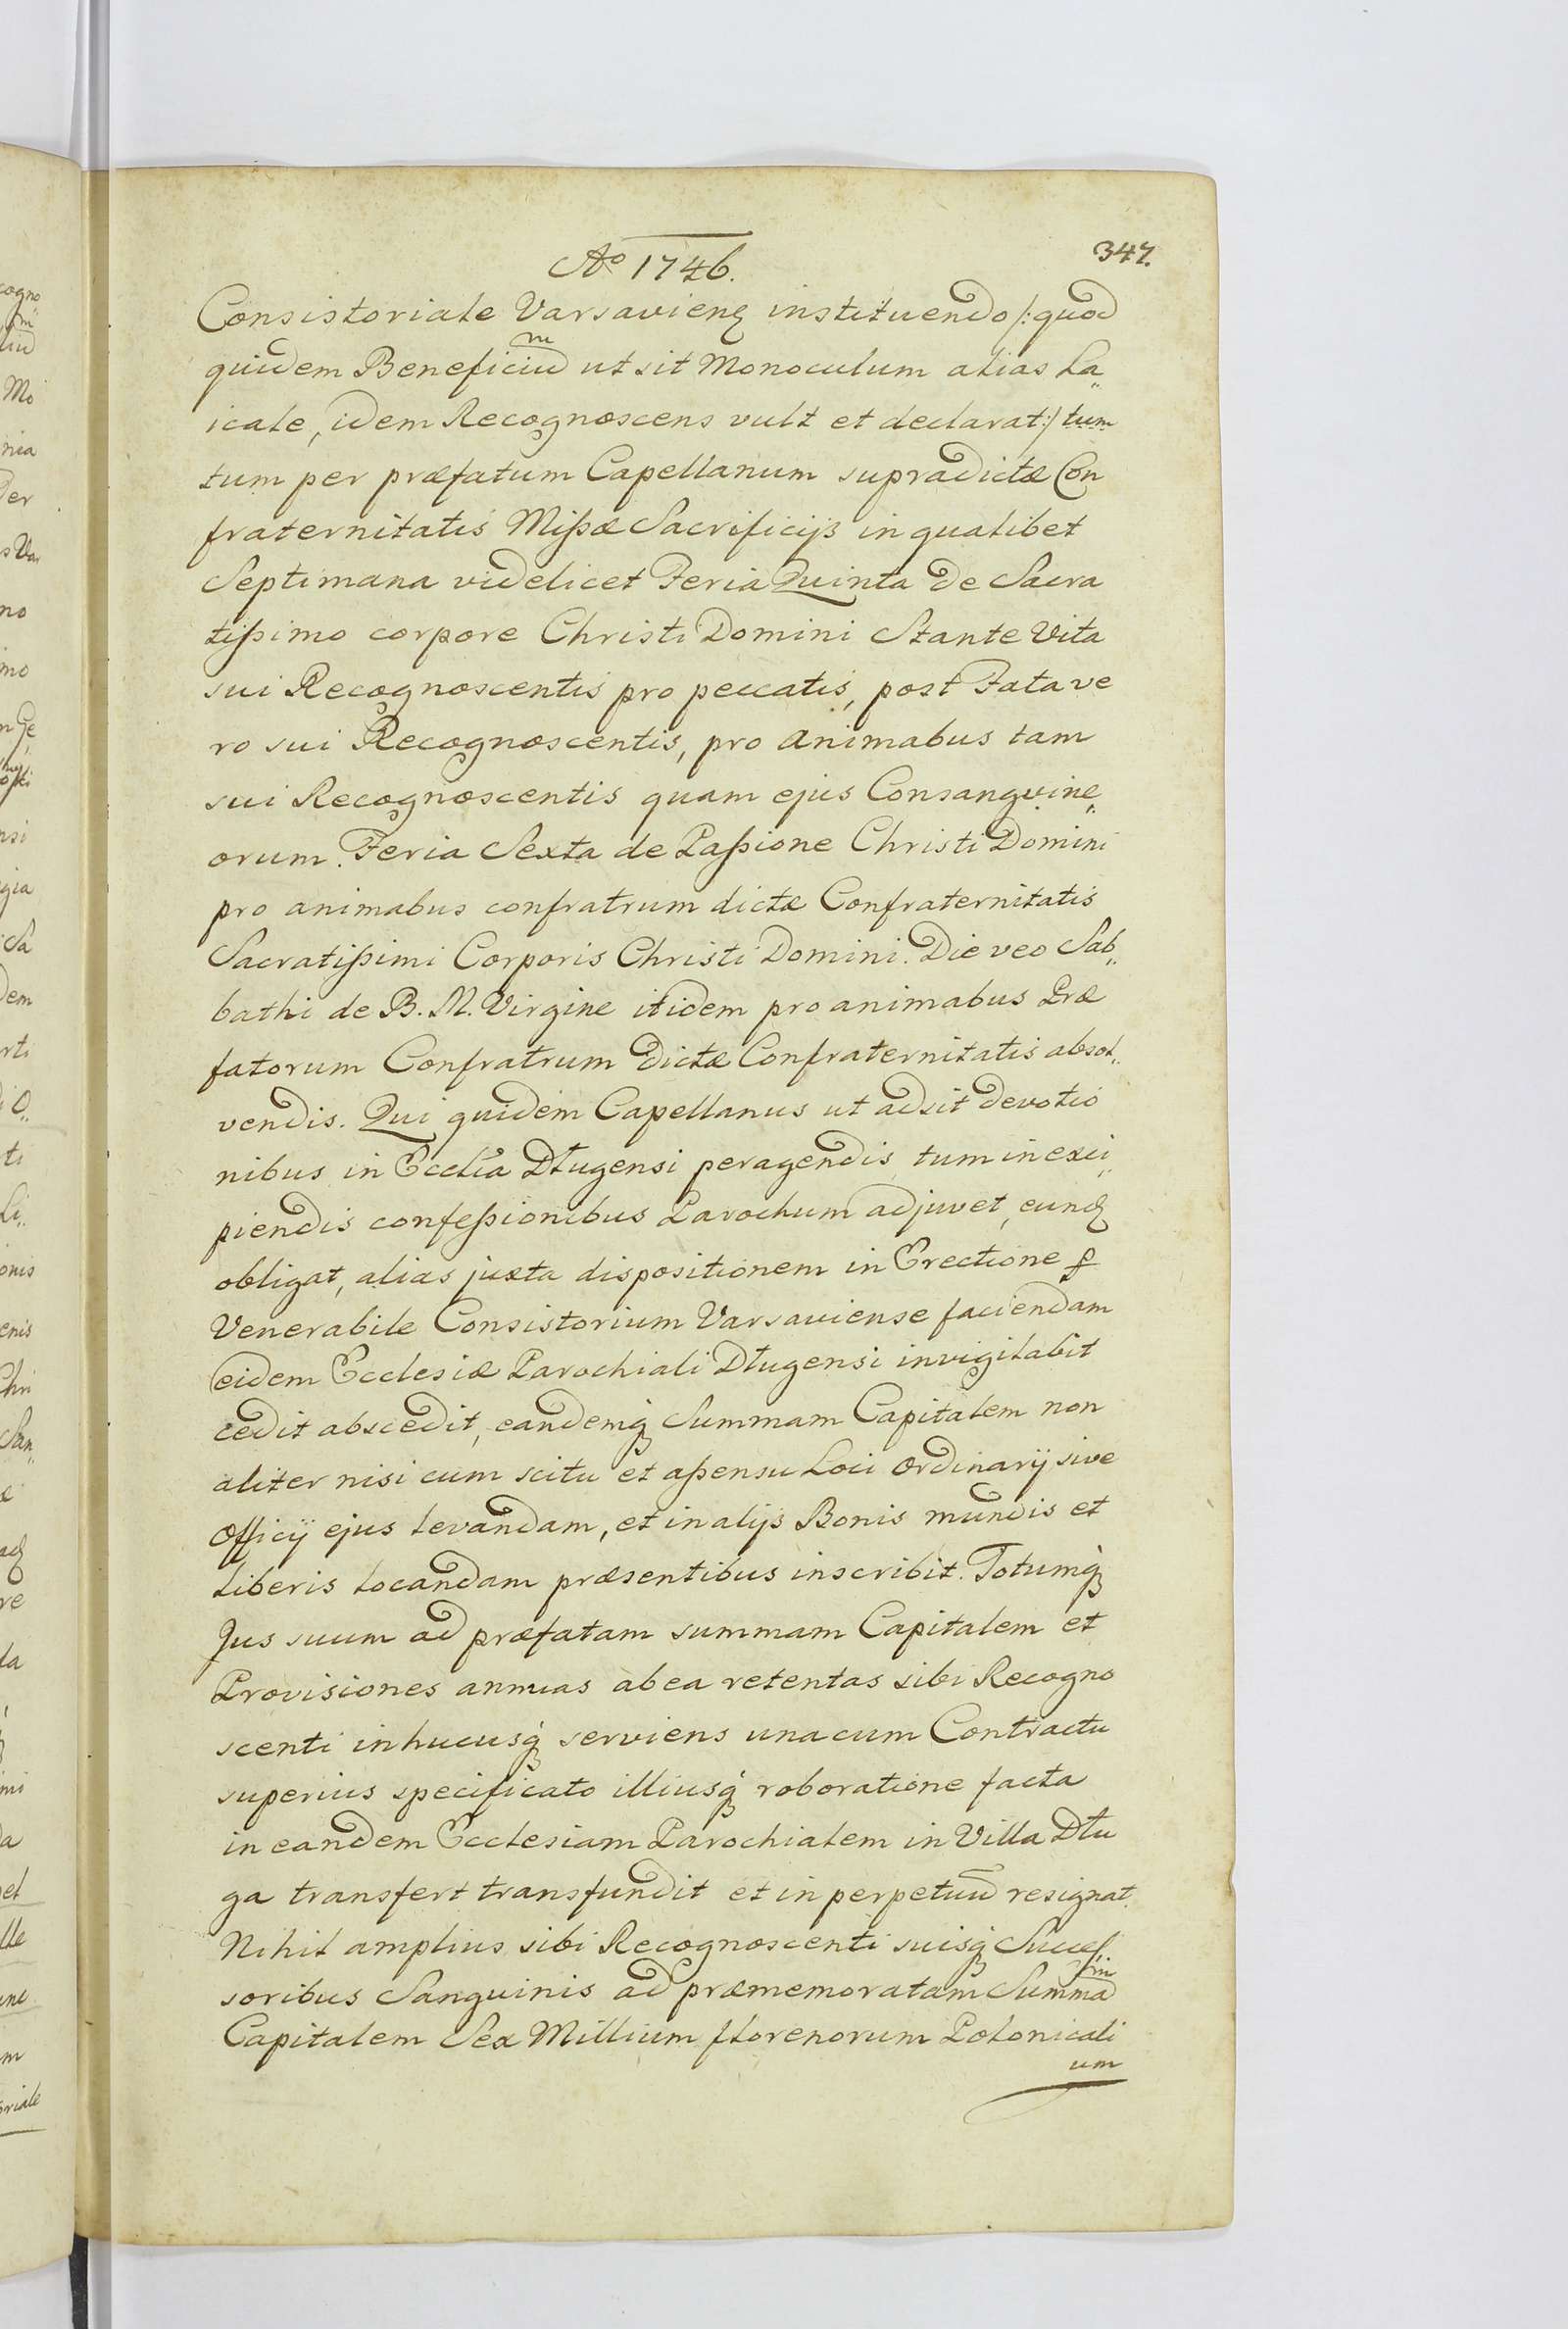 347.
Aº 1746.
Consistoriale Varsavienȩ instituendo /: quod
quidem Beneficiu͞m ut sit Monoculum alias La„
icale, idem Recognoscens vult et declarat :/ tum
tum per præfatum Capellanum supradictæ Con
fraternitatis Missæ Sacrificijs in qualibet
Septimana videlicet Feria Quinta de Sacra
tissimo corpore Christi Domini Stante Vita
sui Recognoscentis pro peccatis, post Fata ve
ro sui Recognoscentis, pro animabus tam
sui Recognoscentis quam ejus Consangvine„
orum. Feria Sexta de Passione Christi Domini
pro animabus confratrum dictæ Confraternitatis
Sacratissimi Corporis Christi Domini. Die veo Sab„
bathi de B. M. Virgine itidem pro animabus Præ
fatorum Confratrum dictæ Confraternitatis absol„
vendis. Qui quidem Capellanus ut adsit devotio
nibus in Ecclia Długensi peragendis, tum in exci„
piendis confessionibus Parochum adjuvet, eundȩ
obligat, alias juxta dispositionem in Erectione ꝑ
Venerabile Consistorium Varsaviense faciendam
eidem Ecclesiæ Parochiali Długensi invigilabit
cedit abscedit, eandemq̨ Summam Capitalem non
aliter nisi cum scitu et assensu Loci Ordinarij sive
Officij ejus levandam, et in alijs Bonis mundis et
liberis locandam præsentibus inscribit. Totumq̨
Jus suum ad præfatam summam Capitalem et
Provisiones annuas ab ea retentas sibi Recogno
scenti in hucusq̨ serviens una cum Contractu
superius specificato illiusq̨ roboratione facta
in eandem Ecclesiam Parochialem in Villa Dłu
ga transfert transfundit et in perpetuu͞ resignat.
Nihil amplius sibi Recognoscenti suisq̨ Succes„
soribus Sanguinis ad præmemoratam Summa͞m
Capitalem Sex Millium florenorum Polonicali
um